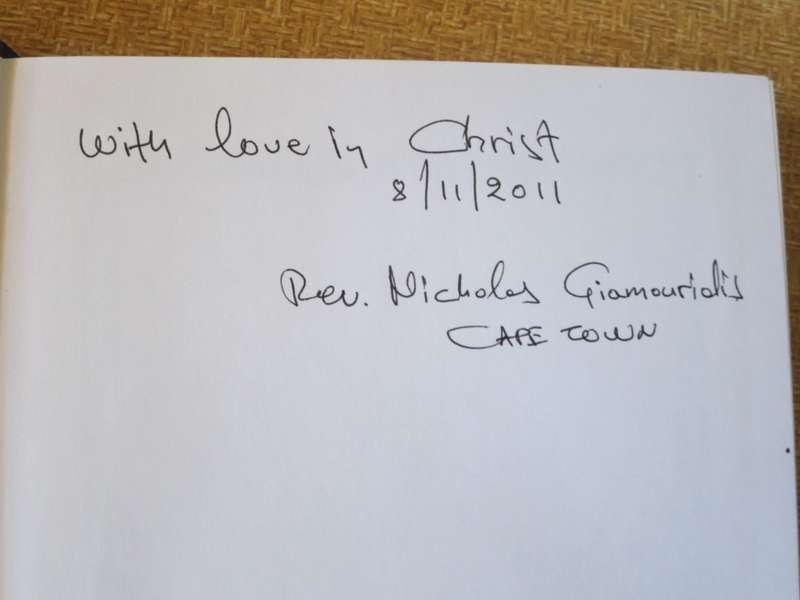 With love in Christ
8/11/2011
Rev. Nicholas Giamouridis
CAPE TOWN